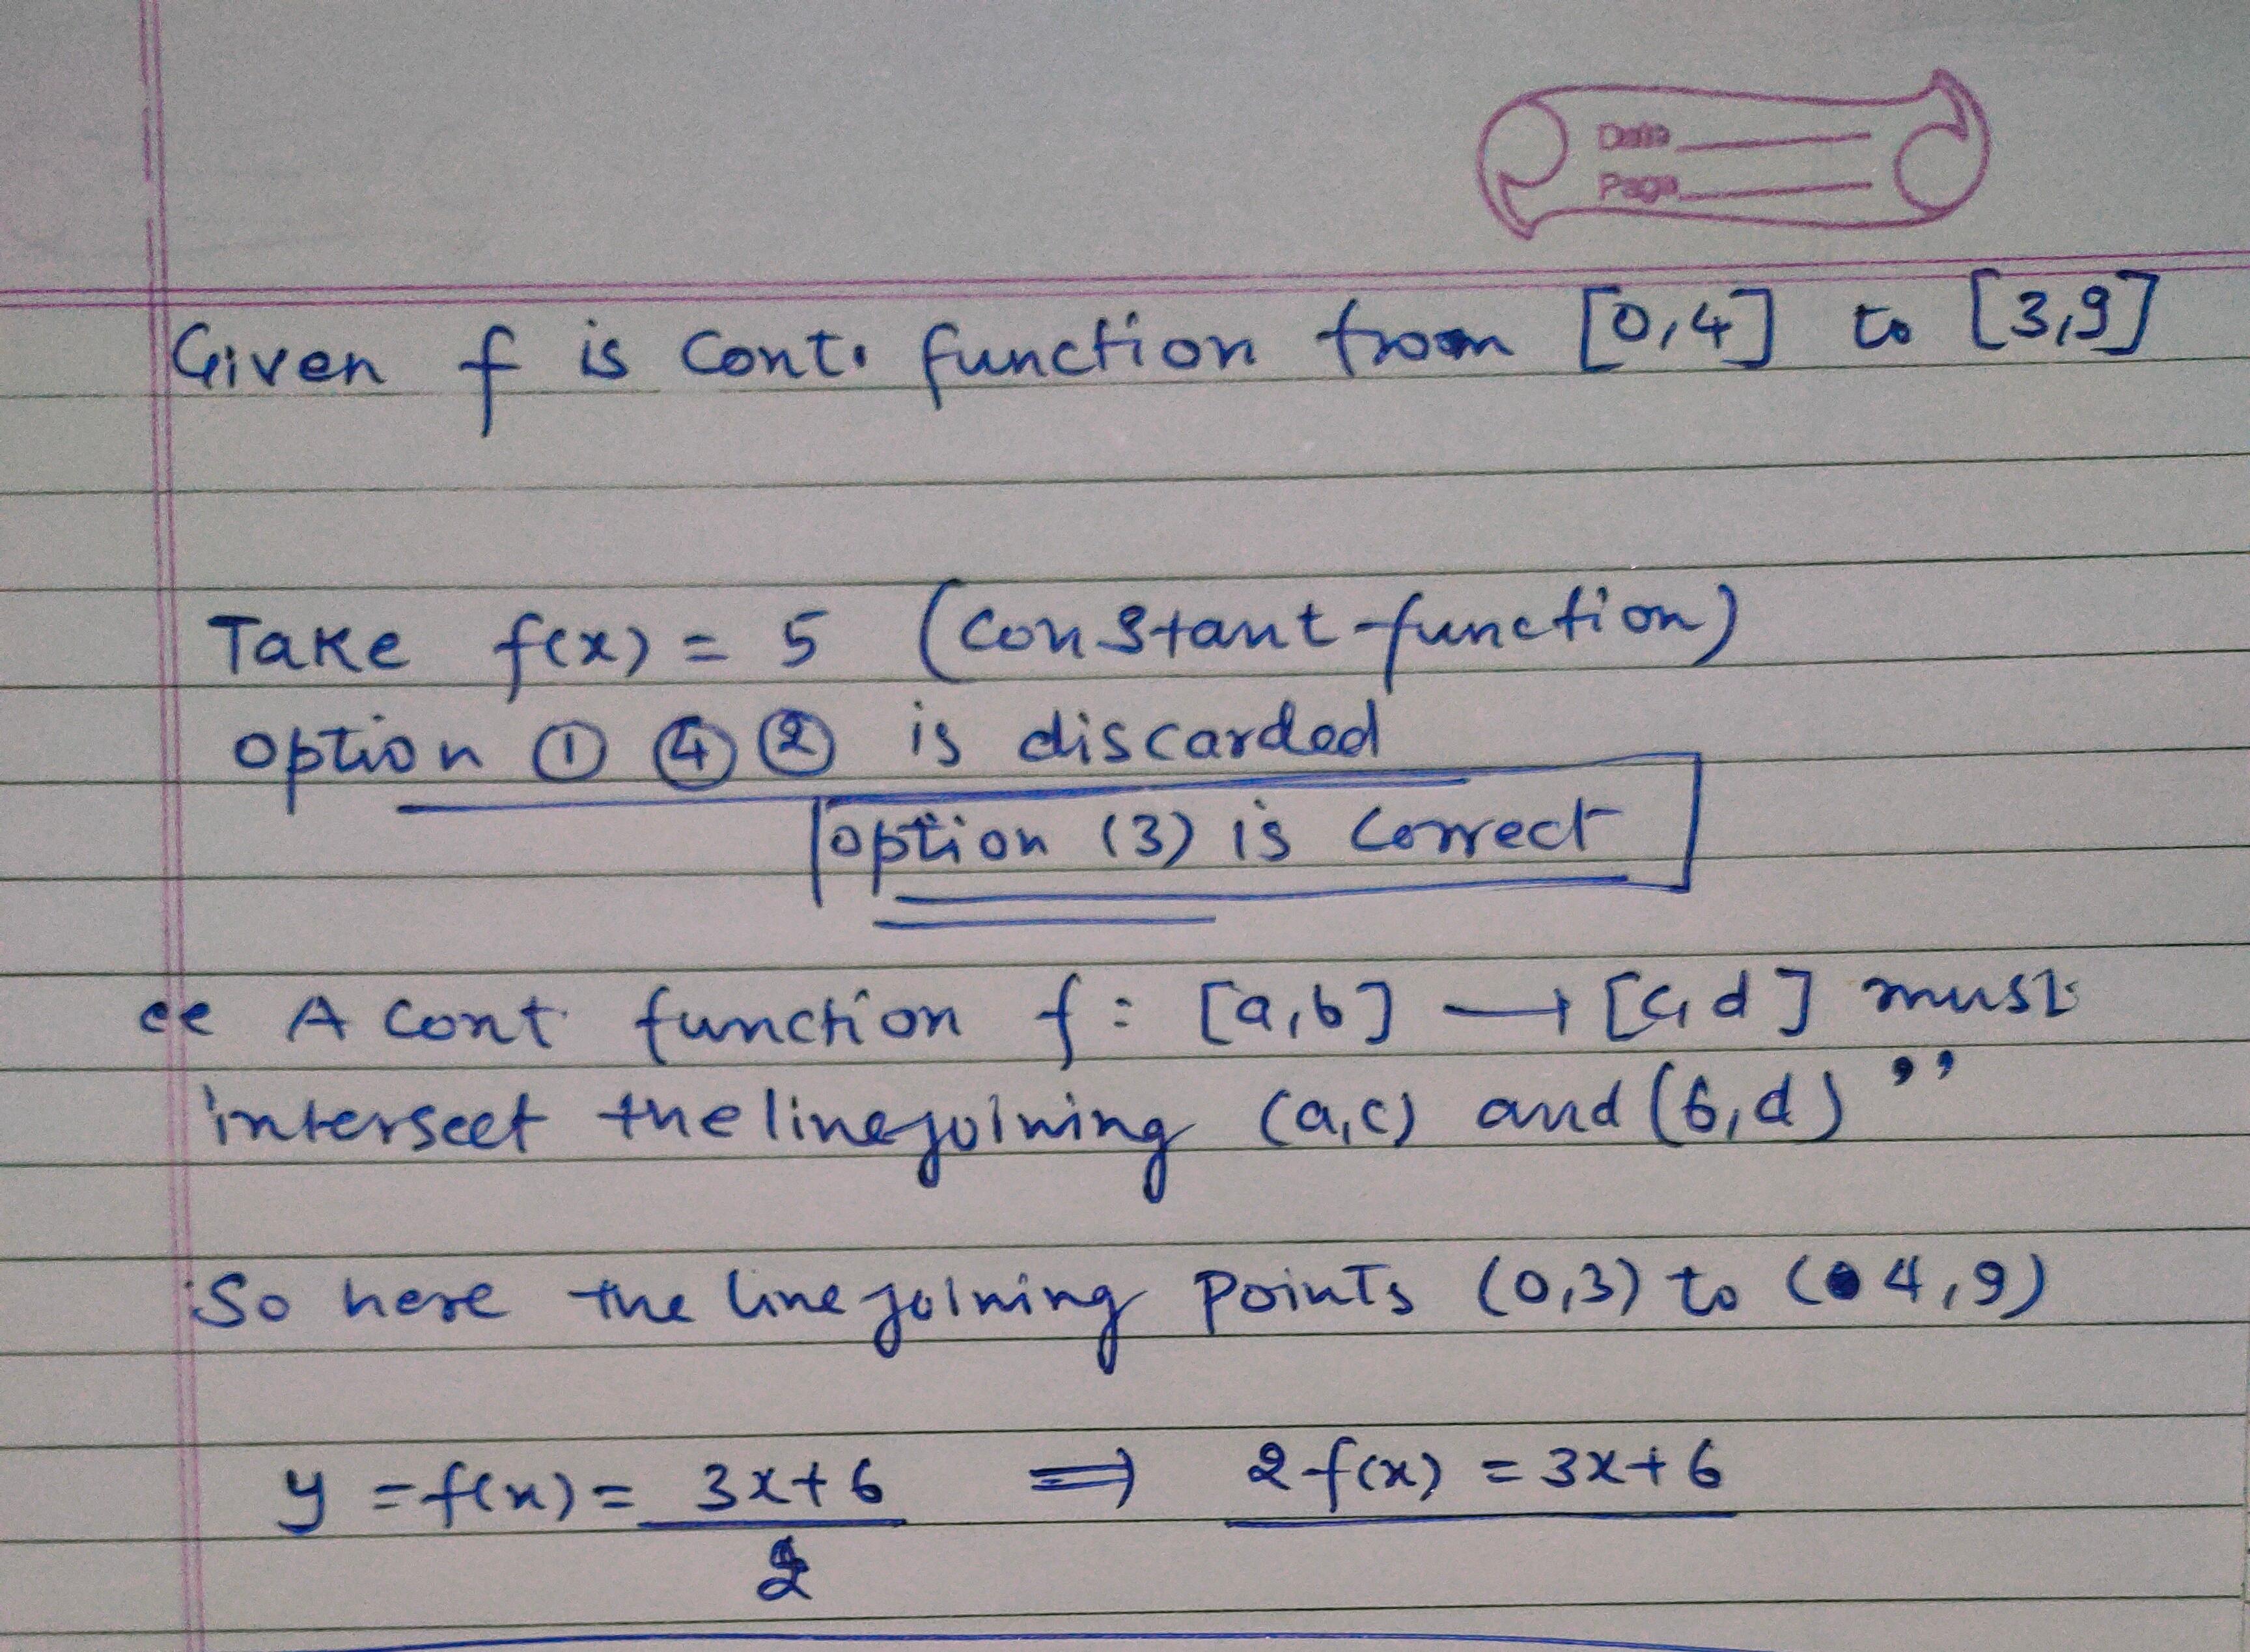 Date
Page
Given f is cont. function from [0,4] to [3,9]
Take f(x) = 5 (constant function)
option ① ④ ② is discarded
option (3) is correct
“ A cont function f: [a,b] → [c,d] must
intersect the line joining (a,c) and (b,d) ”
So here the line joining points (0,3) to (4,9)
y = f(x) = 3x+6 ⇒ 2f(x) = 3x+6
2